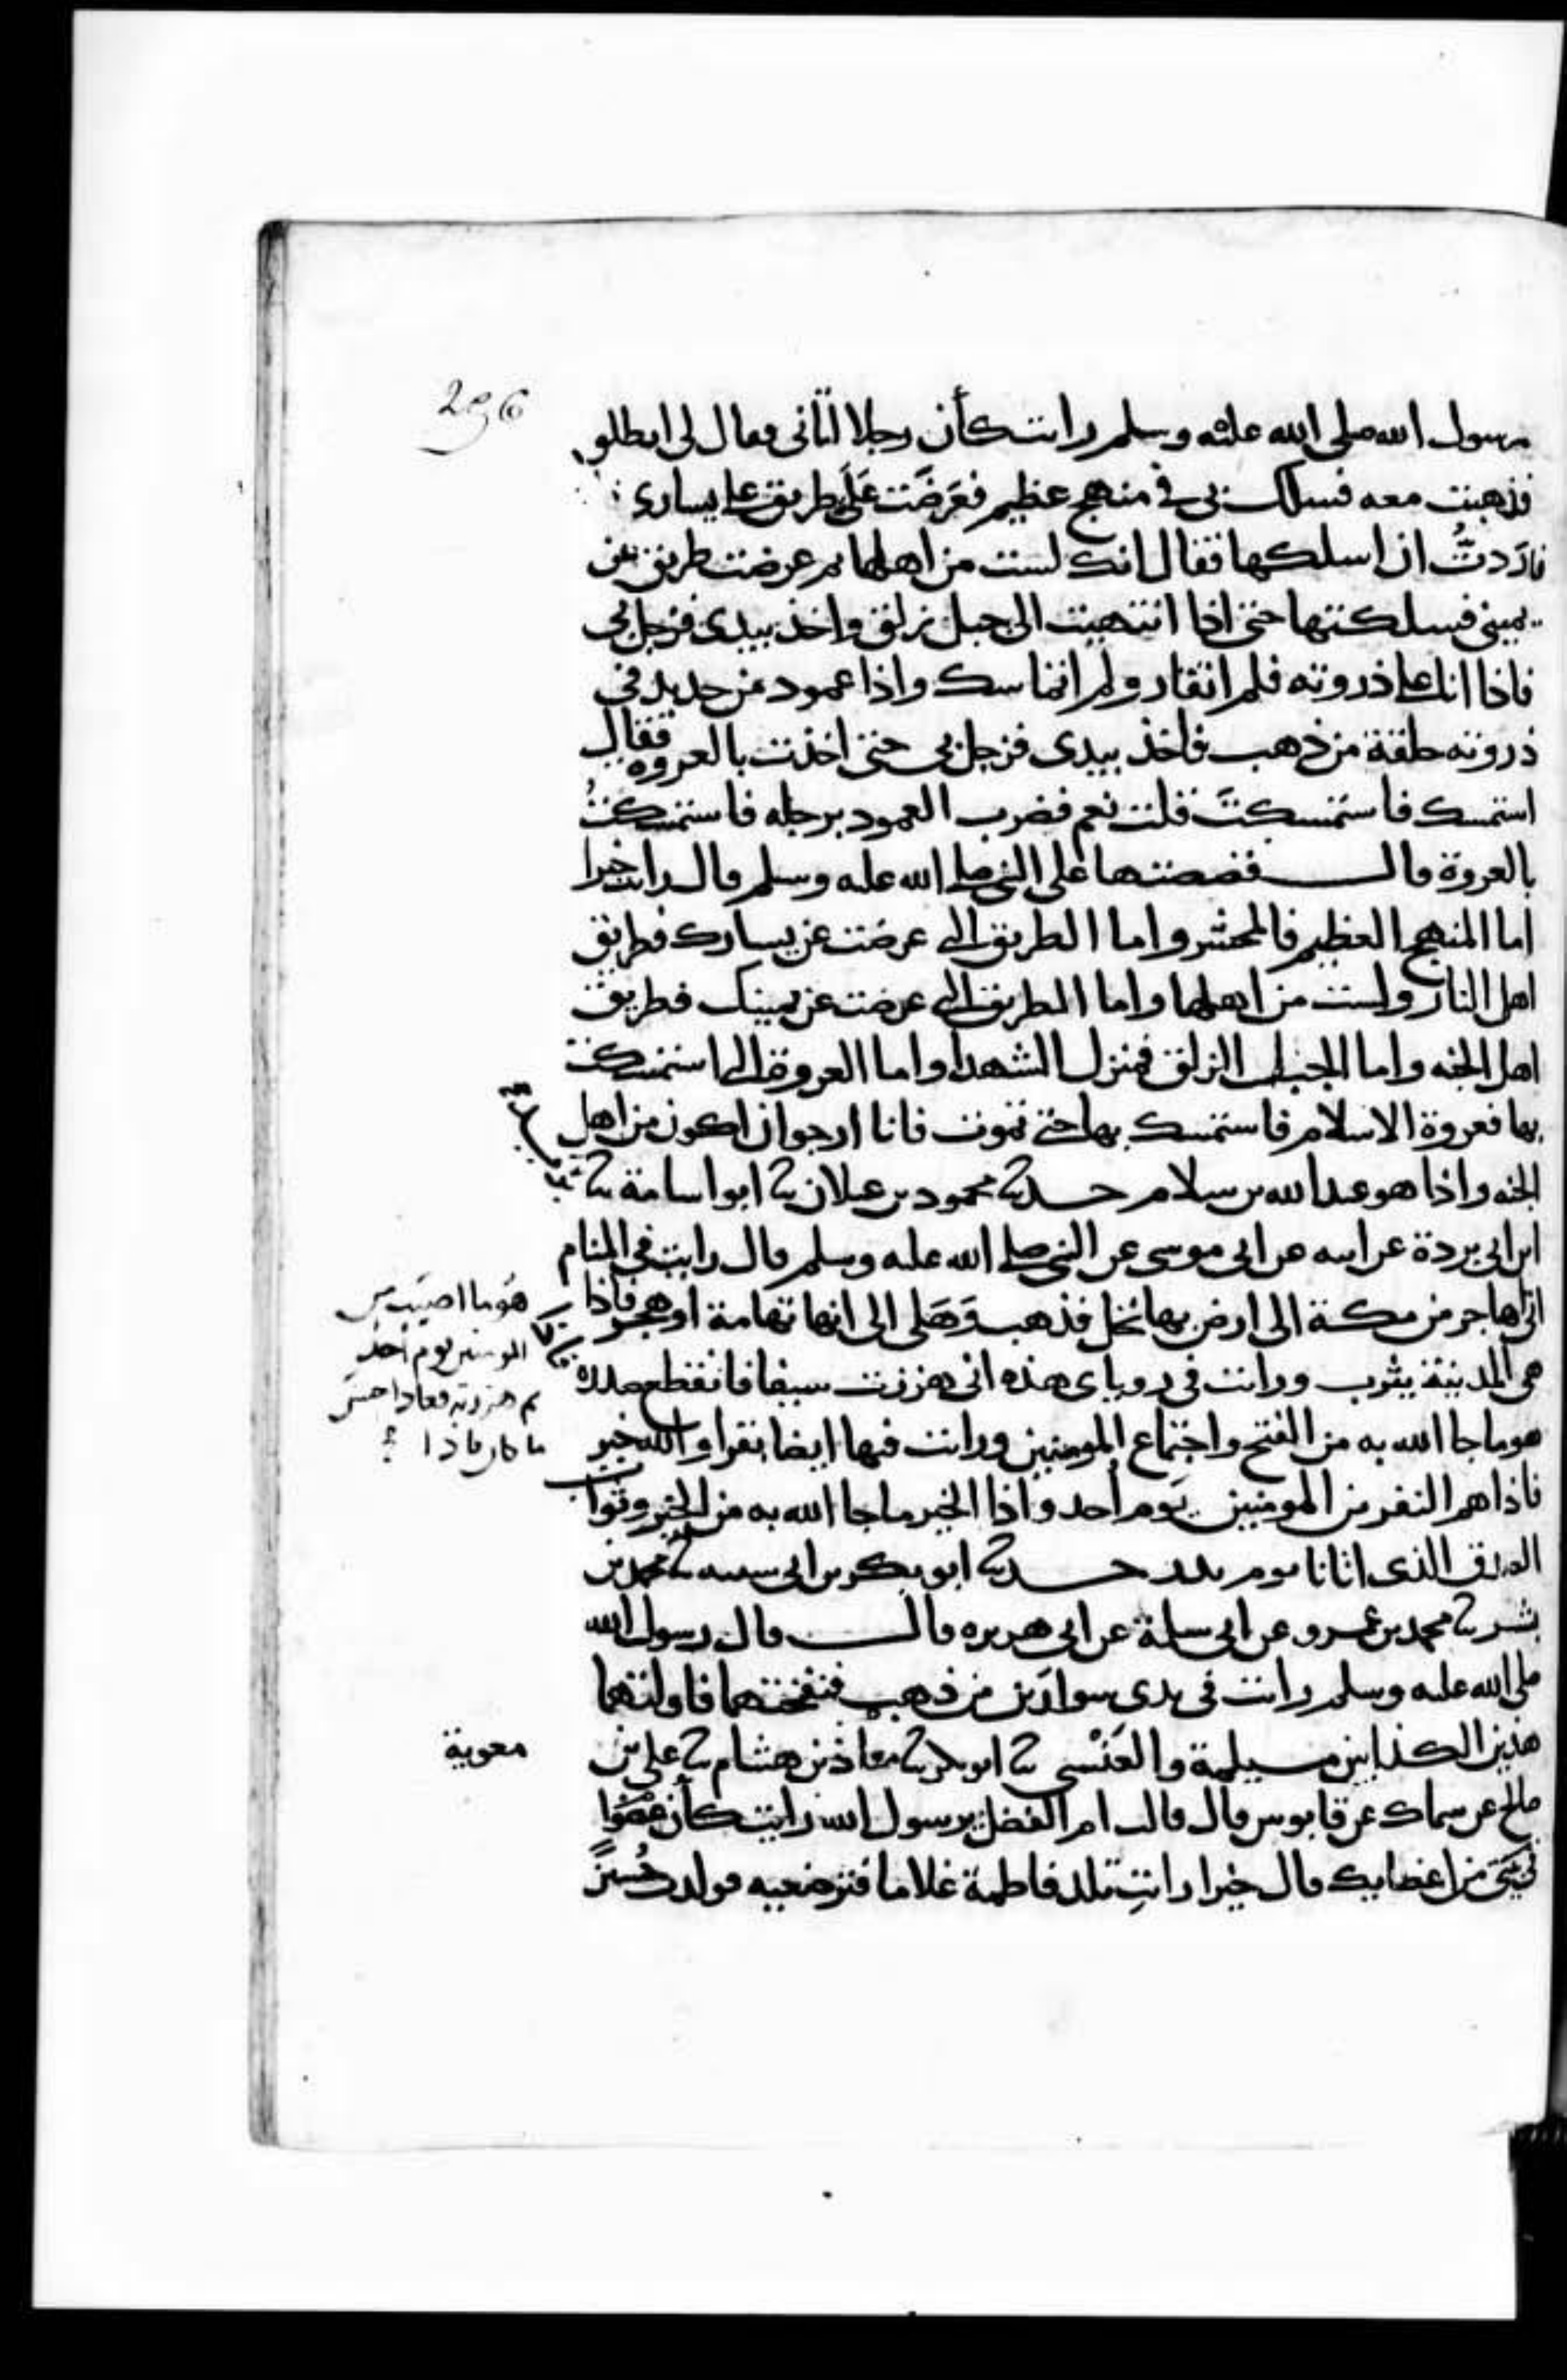 296
رسول الله صلى الله عليه وسلم رايت كأن رجلا اتانى فقال لى انطلق
فذهبت معه فسلك بى فى منهج عظيم فعَرَضَت عَلَىَّ طريق على يسارى
فارَدتُ ان اسلكها فقال انك لست من اهلها ثم عرضت طريق عن
يمينى فسلكتها حتى اذا انتهيت الى جبل زلق واخذ بيدى فزجل بى
فاذا انا على ذروته فلم اتقار ولم اتماسك واذا عمود من حديد فى
ذروته حلقة من ذهب فاخذ بيدى فزجل بى حتى اخذت بالعروه فقال
استمسك فاستمسكتَ قلت نعم فضرب العمود برجله فاستمسكتُ
بالعروة قال قصصتها على النبى صلى الله عليه وسلم قال رايت خيرا
اما المنهج العظيم فالمحشر واما الطريق التى عرضت عن يسارك فطريق
اهل النار ولست من اهلها واما الطريق التى عرضت عن يمينك فطريق
اهل الجنه واما الجبل الزلق فمنزل الشهدا واما العروة التى استمسكت
بها فعروة الاسلام فاستمسك بها حتى تموت فانا ارجوا ان اكون من اهل
الجنه واذا هو عبد الله بن سلام حدثنا محمود بن غيلان ثنا ابو اسامة ثنا بريد
ابن ابى بردة عن ابيه عن ابى موسى عن النبى صلى الله عليه وسلم قال رايت فى المنام
انى اهاجر من مكة الى ارض بها نخل فذهب وَهَلى الى انها تهامة او هجر فاذا
هى المدينة يثرب ورايت فى روياى هذه انى هززت سيفا فانقطع صدره
هو ما اصيب من
المومنين يوم احد
ثم هززته فعاد احسن
ما كان فاذا
هو ما جا الله به من الفتح واجتماع المومنين ورايت فيها ايضا بقرا والله خير
فاذا هم النفر من المومنين يَوم أحد واذا الخير ما جا الله به من الخير وثواب
الصدق الذى اتانا يوم بدر حدثنا ابو بكر بن ابى شيبه ثنا محمد بن
بشر ثنا محمد بن عمرو عن ابى سلمة عن ابى هريره قال قال رسول الله
صلى الله عليه وسلم رايت فى يدى سوارَين من ذهب فنفختهما فاولتهما
هذين الكذابين مسيلمة والعَنْسى ثنا ابو بكر ثنا معاذ بن هشام ثنا على بن
معوية
صالح عن سماك عن قابوس قال قالت ام الفضل يرسول الله رايت كأن عضوا
فى بيتى من اعضايك قال خيرا رايتِ تلد فاطمة غلاما فترضعيه فولدت حُسين